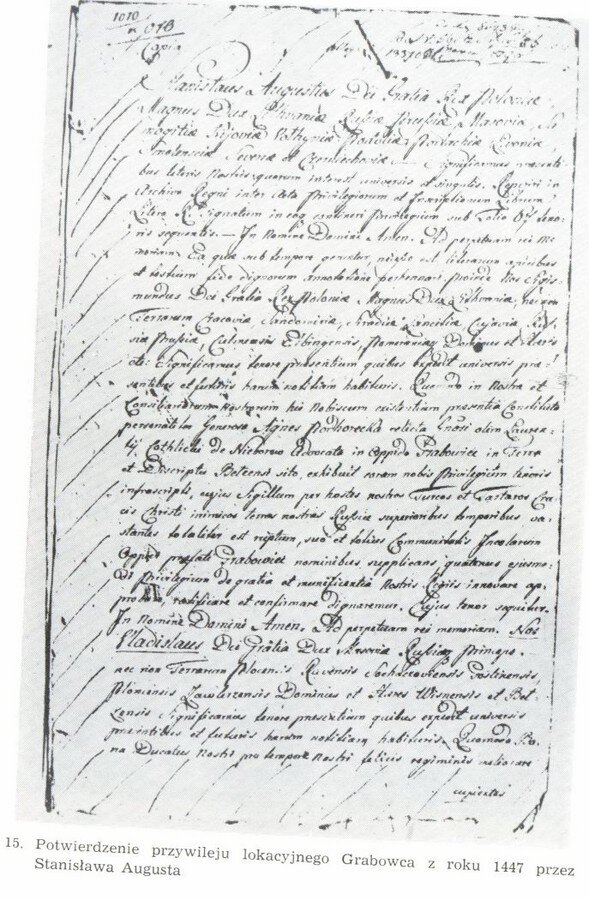 1010
Copia
Stanislaus Augustus Dei Gratia Rex Poloniæ
Magnus Dux Lithuaniæ Russiæ Prussiæ Masoviæ Sa-
mogitiæ Kijoviæ Volhyniæ Podoliæ Podlachiæ Livoniæ
Smolensciæ Severiæ et Czerniechoviæ — Significamus præsenti-
bus literis Nostris quorum interest universis et singulis. Reperiri in
Archivo Regni inter Acta Privilegiorum et Inscriptionum Librum
Litera signatum in eoq contineri Privilegium sub teno-
ris sequentis. — In Nomine Domini Amen. Ad perpetuam rei me-
moriam. Ea quæ sub tempore geruntur literarum apicibus
et testium fide dignorum annotatione perhennari. Proinde Nos Sigis-
mundus Dei Gratia Rex Poloniæ Magnus Dux Lithvaniæ, nec non
Terrarum Cracoviæ, Sandomiriæ, Siradiæ Lanciciæ Cujaviæ Rus-
siæ Prussiæ, Culmensis Elbingensis, Pomeraniæ Dominus et Hæres
etc. Significamus tenore præsentium quibus expedit universis præ-
sentibus et futuris harum notitiam habituris. Quomodo in Nostra et
Consiliariorum Nostrorum hic Nobiscum existentium præsentia Constituta
personaliter Generosa Agnes Podhorecka relicta Gnosi olim Lauren-
tij Cothlicki de Nieborow Advocata in oppido Grabowiec in Terra
et Districtu Belzensi sito, exhibuit coram nobis Privilegium tenoris
infrascripti, cujus Sigillum per hostes nostros Turcos et Tartaros Cru-
cis Christi inimicos terras nostras Russiæ superioribus temporibus va-
stantes totaliter est ruptum, suo et totius Communitatis Incolarum
Oppidi præfati Grabowiec nominibus supplicans, quatenus ejusmo-
di Privilegium de gratia et munificentia Nostris Regiis innovare ap-
probare, ratificare et confirmare dignaremur. Cujus tenor sequitur.
In Nomine Domini Amen. Ad perpetuam rei memoriam. Nos
Vladislaus Dei Gratia Dux Masoviæ Russiæq Princeps.
nec non Terrarum Plocensis Ravensis Sochaczoviensis Gostinensis,
Plonensis Zawkrzensis Dominus et Hæres Wisnensis et Bel-
zensis Significamus tenore præsentium quibus expedit universis
præsentibus et futuris harum notitiam habituris. Quomodo Bo-
na Ducatus Nostri pro tempore Nostri felicis regiminis meliorare
cupientes
15. Potwierdzenie przywileju lokacyjnego Grabowca z roku 1447 przez
Stanisława Augusta